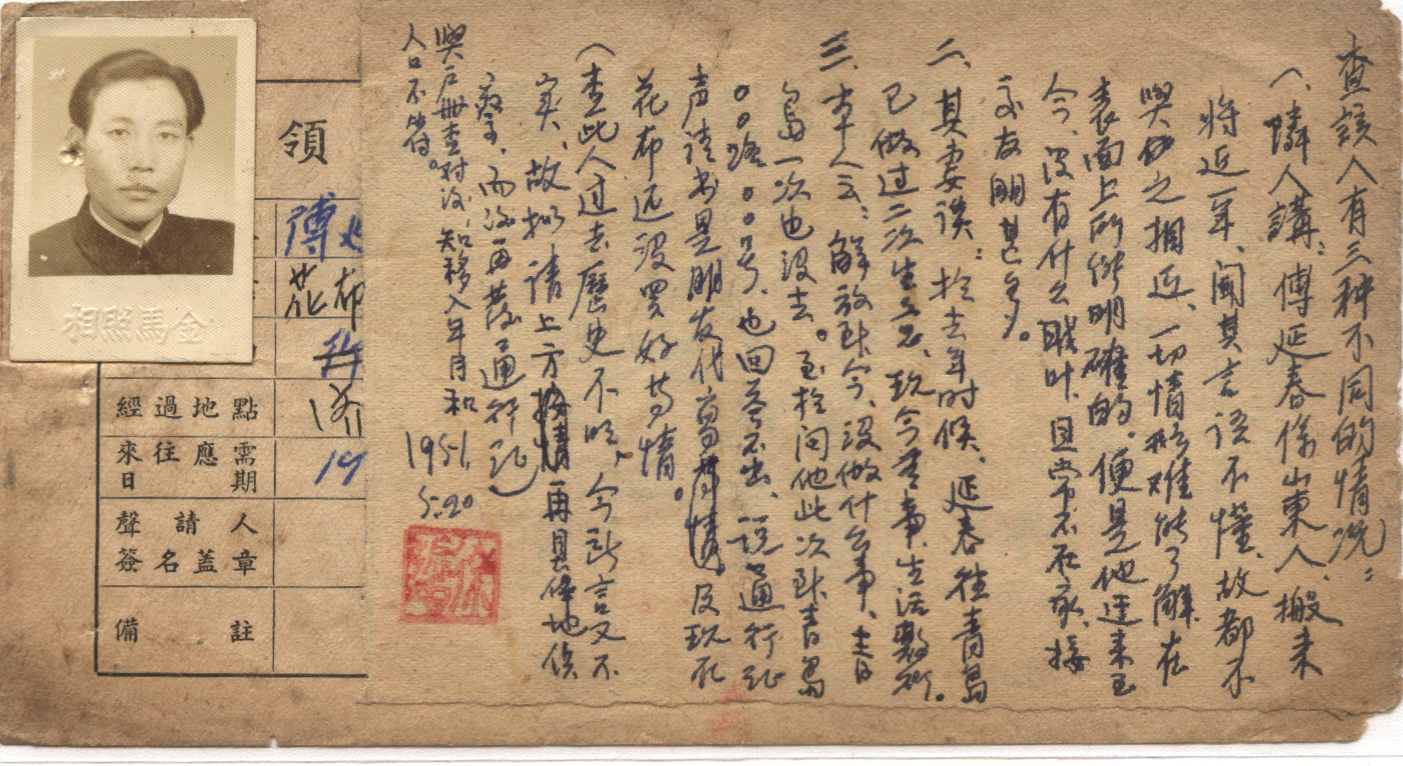 查該人有三种不同的情况：
(一、隣人講：傅延春係山東人、搬来
将近一年、闻其言语不懂、故都不
與他之相近、一切情形难能了解、在
表面上所能明確的、便是他迁来至
今、没有什么職叶、且常不在家、接
交友朋甚多。
二、其妻谈：於去年时候、延春往青島
已做过二次生意、现今無事、生活敷衍。
三、本人云：解放到今、没做什么事、青
島一次也没去。至於问他此次到青島
○○路○○号、也回答不出、说通行証
声请书是朋友代寫情、及现在
花布还没買好等情。
(查此人过去歷史不明、今所言又不
实、故拟请上方再具体地侦
察、而后再發通行証)
與户册查对后、知移入年月和
人口不符。
1951.
5.20
領
傅
花布
濟
19
經過地點
來往應需日期
聲請人簽名蓋章
備註
金馬照相